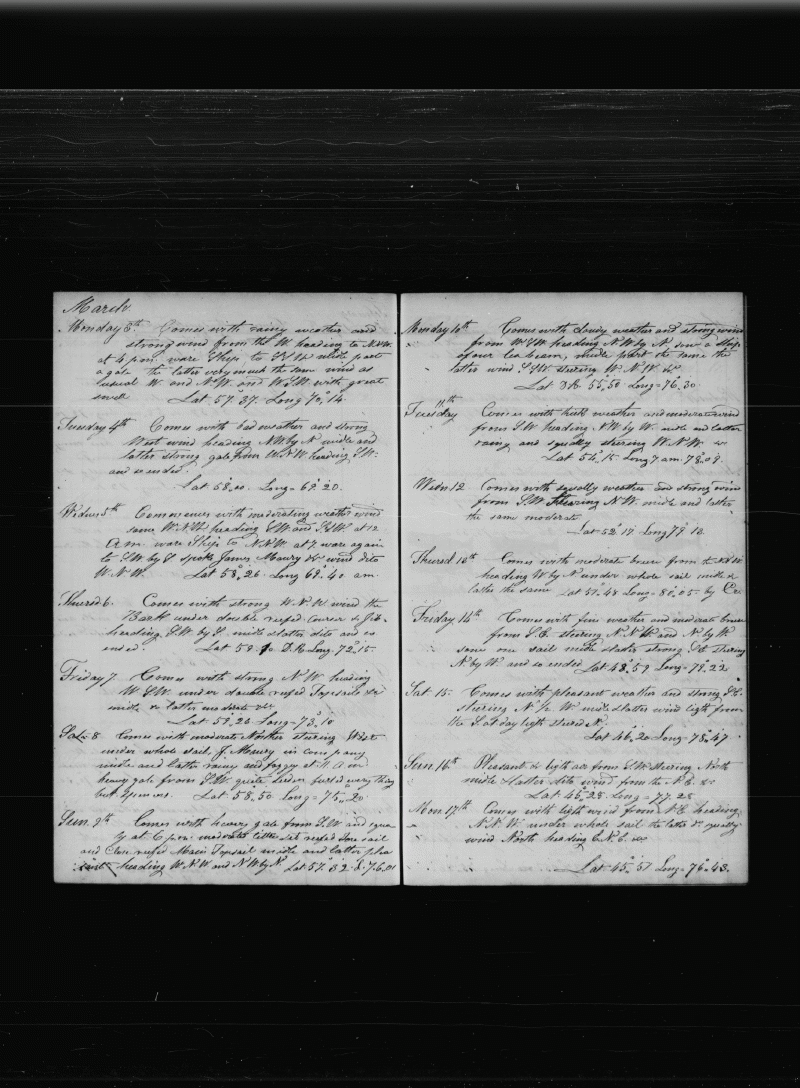 March
Monday 3th Comes with rainy weather and
strong wind from the W. heading to N.N.W.
at 4 p.m. ware Ship to S & W midle part
a gale the latter very much the same wind as
usual W. and N.W. and W.S.W. with great
swell Lat 57.37. Long 70.14.
Tuesday 4th Comes with bad weather and strong
West wind heading N.W. by N. midle and
latter strong gale from W.N.W. heading S.W.
and so ended.
Lat 58.00. Long 69.20.
Wednes 5th Commences with moderating weather wind
same W.N.W. heading S.W. and S.S.W. at 12
A.m. ware Ship to N.N.W. at 7 ware again
to S.W. by S. spoke James Maury &c wind dito
W.N.W. Lat 58.26. Long 69.40 am.
Thursd 6. Comes with strong W.N.W. wind the
Bark under double reefed courses & Jib
heading S.W. by S. midle & latter dito and so
ended. Lat 59.10 D.R. Long. 72.15.
Friday 7. Comes with strong N.W. heading
W.S.W. under double reefed Topsails &c
midle & latter moderate &c
Lat 59.26 Long 73.10
Sat. 8 Comes with moderate Norther steering West
under whole sail. J. Maury in company
midle and latter rainy and foggy at 11 A.m.
heavy gale from S.W. quite sudden furled every thing
but Spencers. Lat 58.50 Long 75.20
Sun. 9th Comes with heavy gale from S.W. and squa
ly at 6 p.m. moderate little set reefed Fore sail
and Close reefed Main Topsail midle and latter plea
sant heading W.N.W. and N.W. by N. Lat 57.32 & 76.01
Monday 10th Comes with Lowry weather and strong wind
from W.S.W. heading N.W. by N. saw a Ship
of our lee beam, midle part the same the
latter wind S.W. steering W.N.W. &c
Lat D.R. 55.50 Long 76.30.
Tuesday 11th Comes with thick weather and moderate wind
from S.W. heading N.W. by W. midle and latter
rainy and squally steering W.N.W. &c
Lat 54.15 Long 7 am. 78.09.
Wedn. 12 Comes with squally weather and strong wind
from S.W. Steering N.W. midle and latter
the same moderate
Lat 52.17 Long 79.12
Thursd 13th Comes with moderate breese from the
heading W. by N. under whole sail midle &
latter the same Lat 51.48 Long 80.05. by
Friday 14th Comes with fine weather and moderate breese
from S.E. steering N.N.W. and N. by W.
some one sail midle & latter strong Do steering
N. by W. and so ended Lat 48.59 Long 79.22
Sat 15. Comes with pleasant weather and strong S.E.
steering N. ½ W. midle & latter wind ligth from
the S. at day ligth steered N.
Lat 46.20 Long 78.47
Sun. 16th Pleasant & ligth air from S.W. steering North
midle & latter dito wind from the N.E. &c
Lat 45.28 Long 77.28
Mon. 17th Comes with ligth wind from N.E. heading
N.N.W. under whole sail the latter Do squally
wind North heading E.N.E. &c
Lat 45.51 Long 76.43.